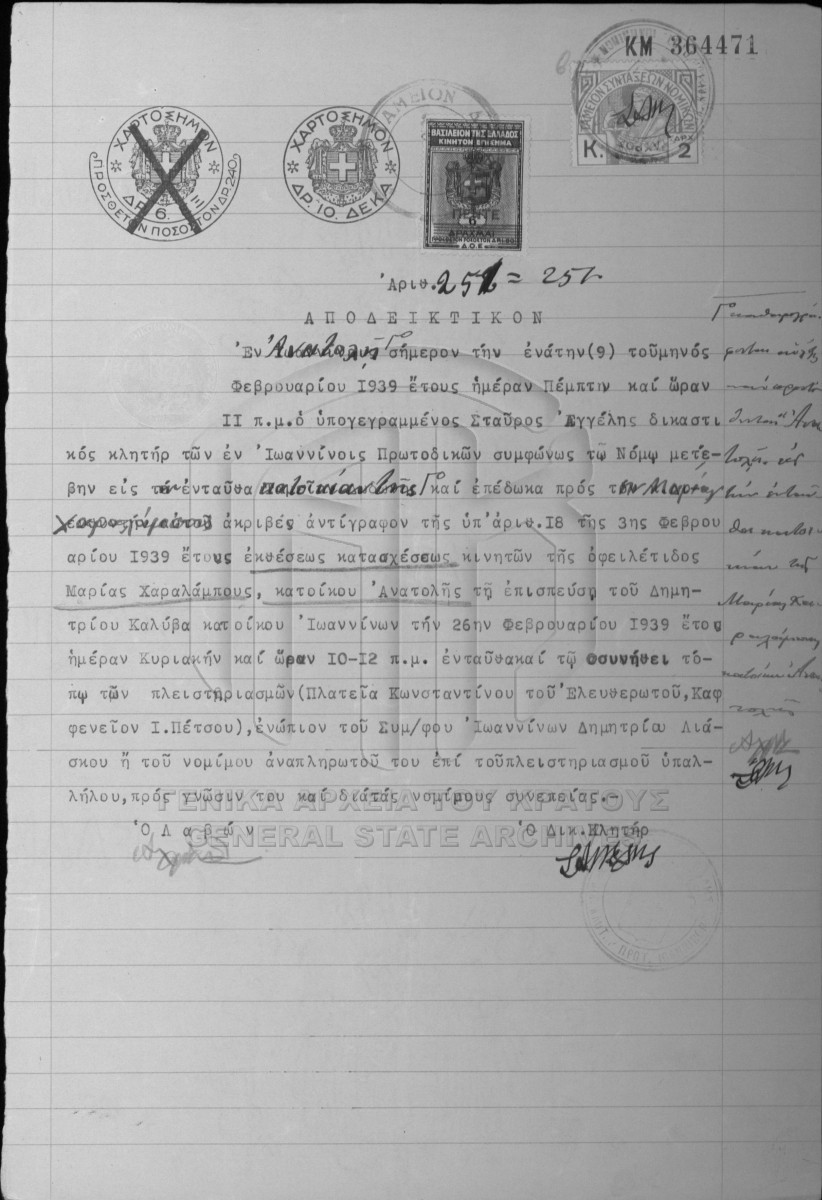 ΚΜ 364471
ΧΑΡΤΟΣΗΜΟΝ
ΔΡ. 6.
ΠΡΟΣΘΕΤΟΝ ΠΟΣΟΣΤΟΝ ΔΡ. 240
ΧΑΡΤΟΣΗΜΟΝ
ΔΡ. 10. ΔΕΚΑ
ΤΑΜΕΙΟΝ
ΒΑΣΙΛΕΙΟΝ ΤΗΣ ΕΛΛΑΔΟΣ
ΚΙΝΗΤΟΝ ΕΠΙΣΗΜΑ
ΠΕΝΤΕ
ΔΡΑΧΜΑΙ
Δ.Ο.Ε.
ΤΑΜΕΙΟΝ ΣΥΝΤΑΞΕΩΝ ΝΟΜΙΚΩΝ
Κ. ΔΡΧ 2
Ἀριθ. 251 = 251
ΑΠΟΔΕΙΚΤΙΚΟΝ
Ἐν Ἀνατολῇ σήμερον τήν ἐνάτην(9) τοῦμηνός
Φεβρουαρίου 1939 ἔτους ἡμέραν Πέμπτην καί ὥραν
ΙΙ π.μ.ὁ ὑπογεγραμμένος Σταῦρος Ἀγγέλης δικαστι
κός κλητήρ τῶν ἐν Ἰωαννίνοις Πρωτοδικῶν συμφώνως τῷ Νόμῳ μετέ-
βην εἰς τήν ἐνταῦθα κατοικίαν της καί ἐπέδωκα πρός τήν Μαρίαν
Χαραλάμπους ἀκριβές ἀντίγραφον τῆς ὑπ'ἀριθ.18 τῆς 3ης Φεβρου
αρίου 1939 ἔτους ἐκθέσεως κατασχέσεως κινητῶν τῆς ὀφειλέτιδος
Μαρίας Χαραλάμπους, κατοίκου Ἀνατολῆς τῇ ἐπισπεύσῃ τοῦ Δημη-
τρίου Καλύβα κατοίκου Ἰωαννίνων τήν 26ην Φεβρουαρίου 1939 ἔτος
ἡμέραν Κυριακήν καί ὥραν 10-12 π.μ. ἐνταῦθακαί τῷ συνήθει τό-
πῳ τῶν πλειστηριασμῶν(Πλατεῖα Κωνσταντίνου τοῦ Ἐλευθερωτοῦ,Καφ
φενεῖον Ι.Πέτσου),ἐνώπιον τοῦ Συμ/φου Ἰωαννίνων Δημητρίου Λιά-
σκου ἤ τοῦ νομίμου ἀναπληρωτοῦ του ἐπί τοῦπλειστηριασμοῦ ὑπαλ-
λήλου,πρός γνῶσιν του καί διάτάς νομίμους συνεπείας.-
Ὁ Λαβών
Ὁ Δικ.Κλητήρ
ΓΕΝΙΚΑ ΑΡΧΕΙΑ ΤΟΥ ΚΡΑΤΟΥΣ
GENERAL STATE ARCHIVES
Μαρίας Χα-
ραλάμπους